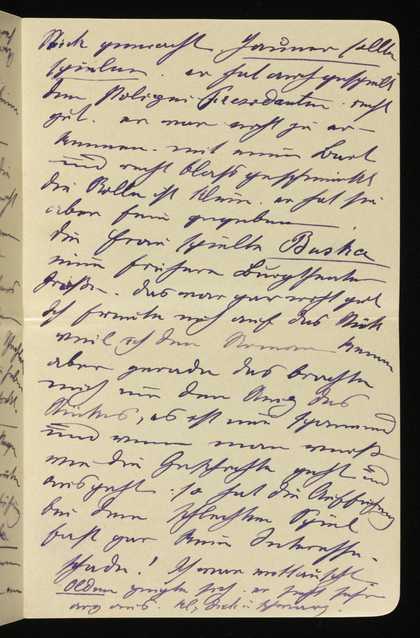 Stück gemacht. Jauner sollte
spielen. er hat auch gespielt
den Polizei Präsidenten. recht
gut. er war nicht zu er-
kennen. mit einem Bart
und recht blass geschminkt
die Rolle ist klein. er hat sie
aber fein gegeben
die Frau spielte Buska
eine frühere Burgtheater
Größe. das war gar nicht gut
Ich freute mich auf das Stück
weil ich den Roman kenne
aber gerade das brachte
mich um den
Stückes, es ist nur spannend
und wenn man weiß
wie die Geschichte geht und
ausgeht. so hat die Aufführung
bei dem schlechten Spiel
fast gar kein Interesse.
schade! Ich war enttäuscht
sich. er sieht sehr
aus. dick u.